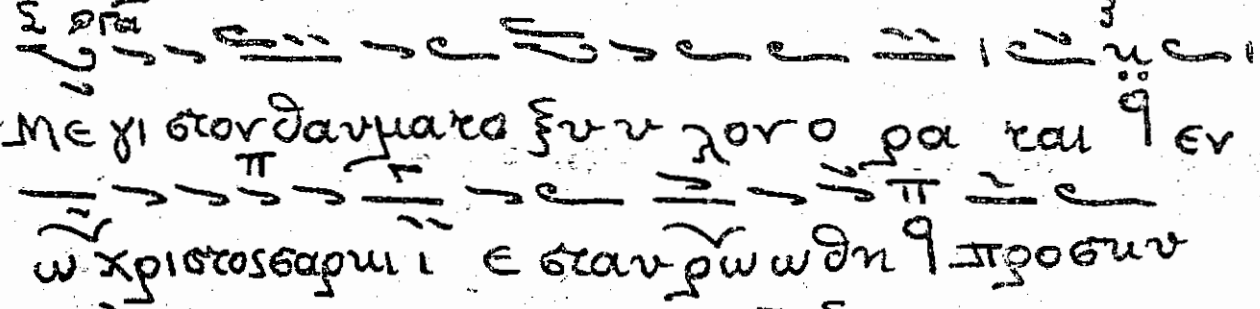 Μεγιστον θαυμα το ξυυλον ορα ται εν
ω χριστος σαρκι ι εσταυρωωθη προσκυ